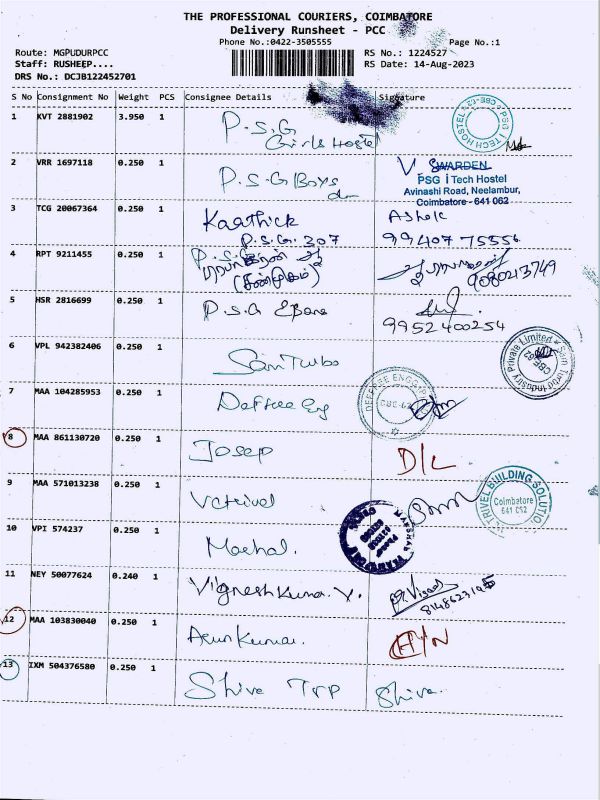 THE PROFESSIONAL COURIERS, COIMBATORE
Delivery Runsheet - PCC
Phone No.:0422-3505555
Page No.:1
Route: MGPUDURPCC
RS No.: 1224527
Staff: RUSHEEP....
RS Date: 14-Aug-2023
DRS No.: DCJB122452701
S No Consignment No Weight PCS Consignee Details Signature
1 KVT 2881902 3.950 1 P.S.G
Girls Hostel
PSG I TECH HOSTEL
2 VRR 1697118 0.250 1 P.S.G Boys
WARDEN
PSG i Tech Hostel
Avinashi Road, Neelambur,
Coimbatore - 641 062
3 TCG 20067364 0.250 1 Kaathick Ashok
P.S.G. 307 99407 75556
4 RPT 9211455 0.250 1 P.S.G
9080213749
5 HSR 2816699 0.250 1 P.S.G
9952400254
6 VPL 942382406 0.250 1 Sam Turbo
Sam Turbo Industry Private Limited
7 MAA 104285953 0.250 1 Deffree Eng
8 MAA 861130720 0.250 1 Josep D/L
9 MAA 571013238 0.250 1 Vetrivel
TRIVEL BUILDING SOLUTIO
Coimbatore
641 062
10 VPI 574237 0.250 1
11 NEY 50077624 0.240 1 Vignesh Kumar. Y.
12 MAA 103830040 0.250 1 Arun Kumar.
13 IXM 504376580 0.250 1 Shiva Trp Shiva